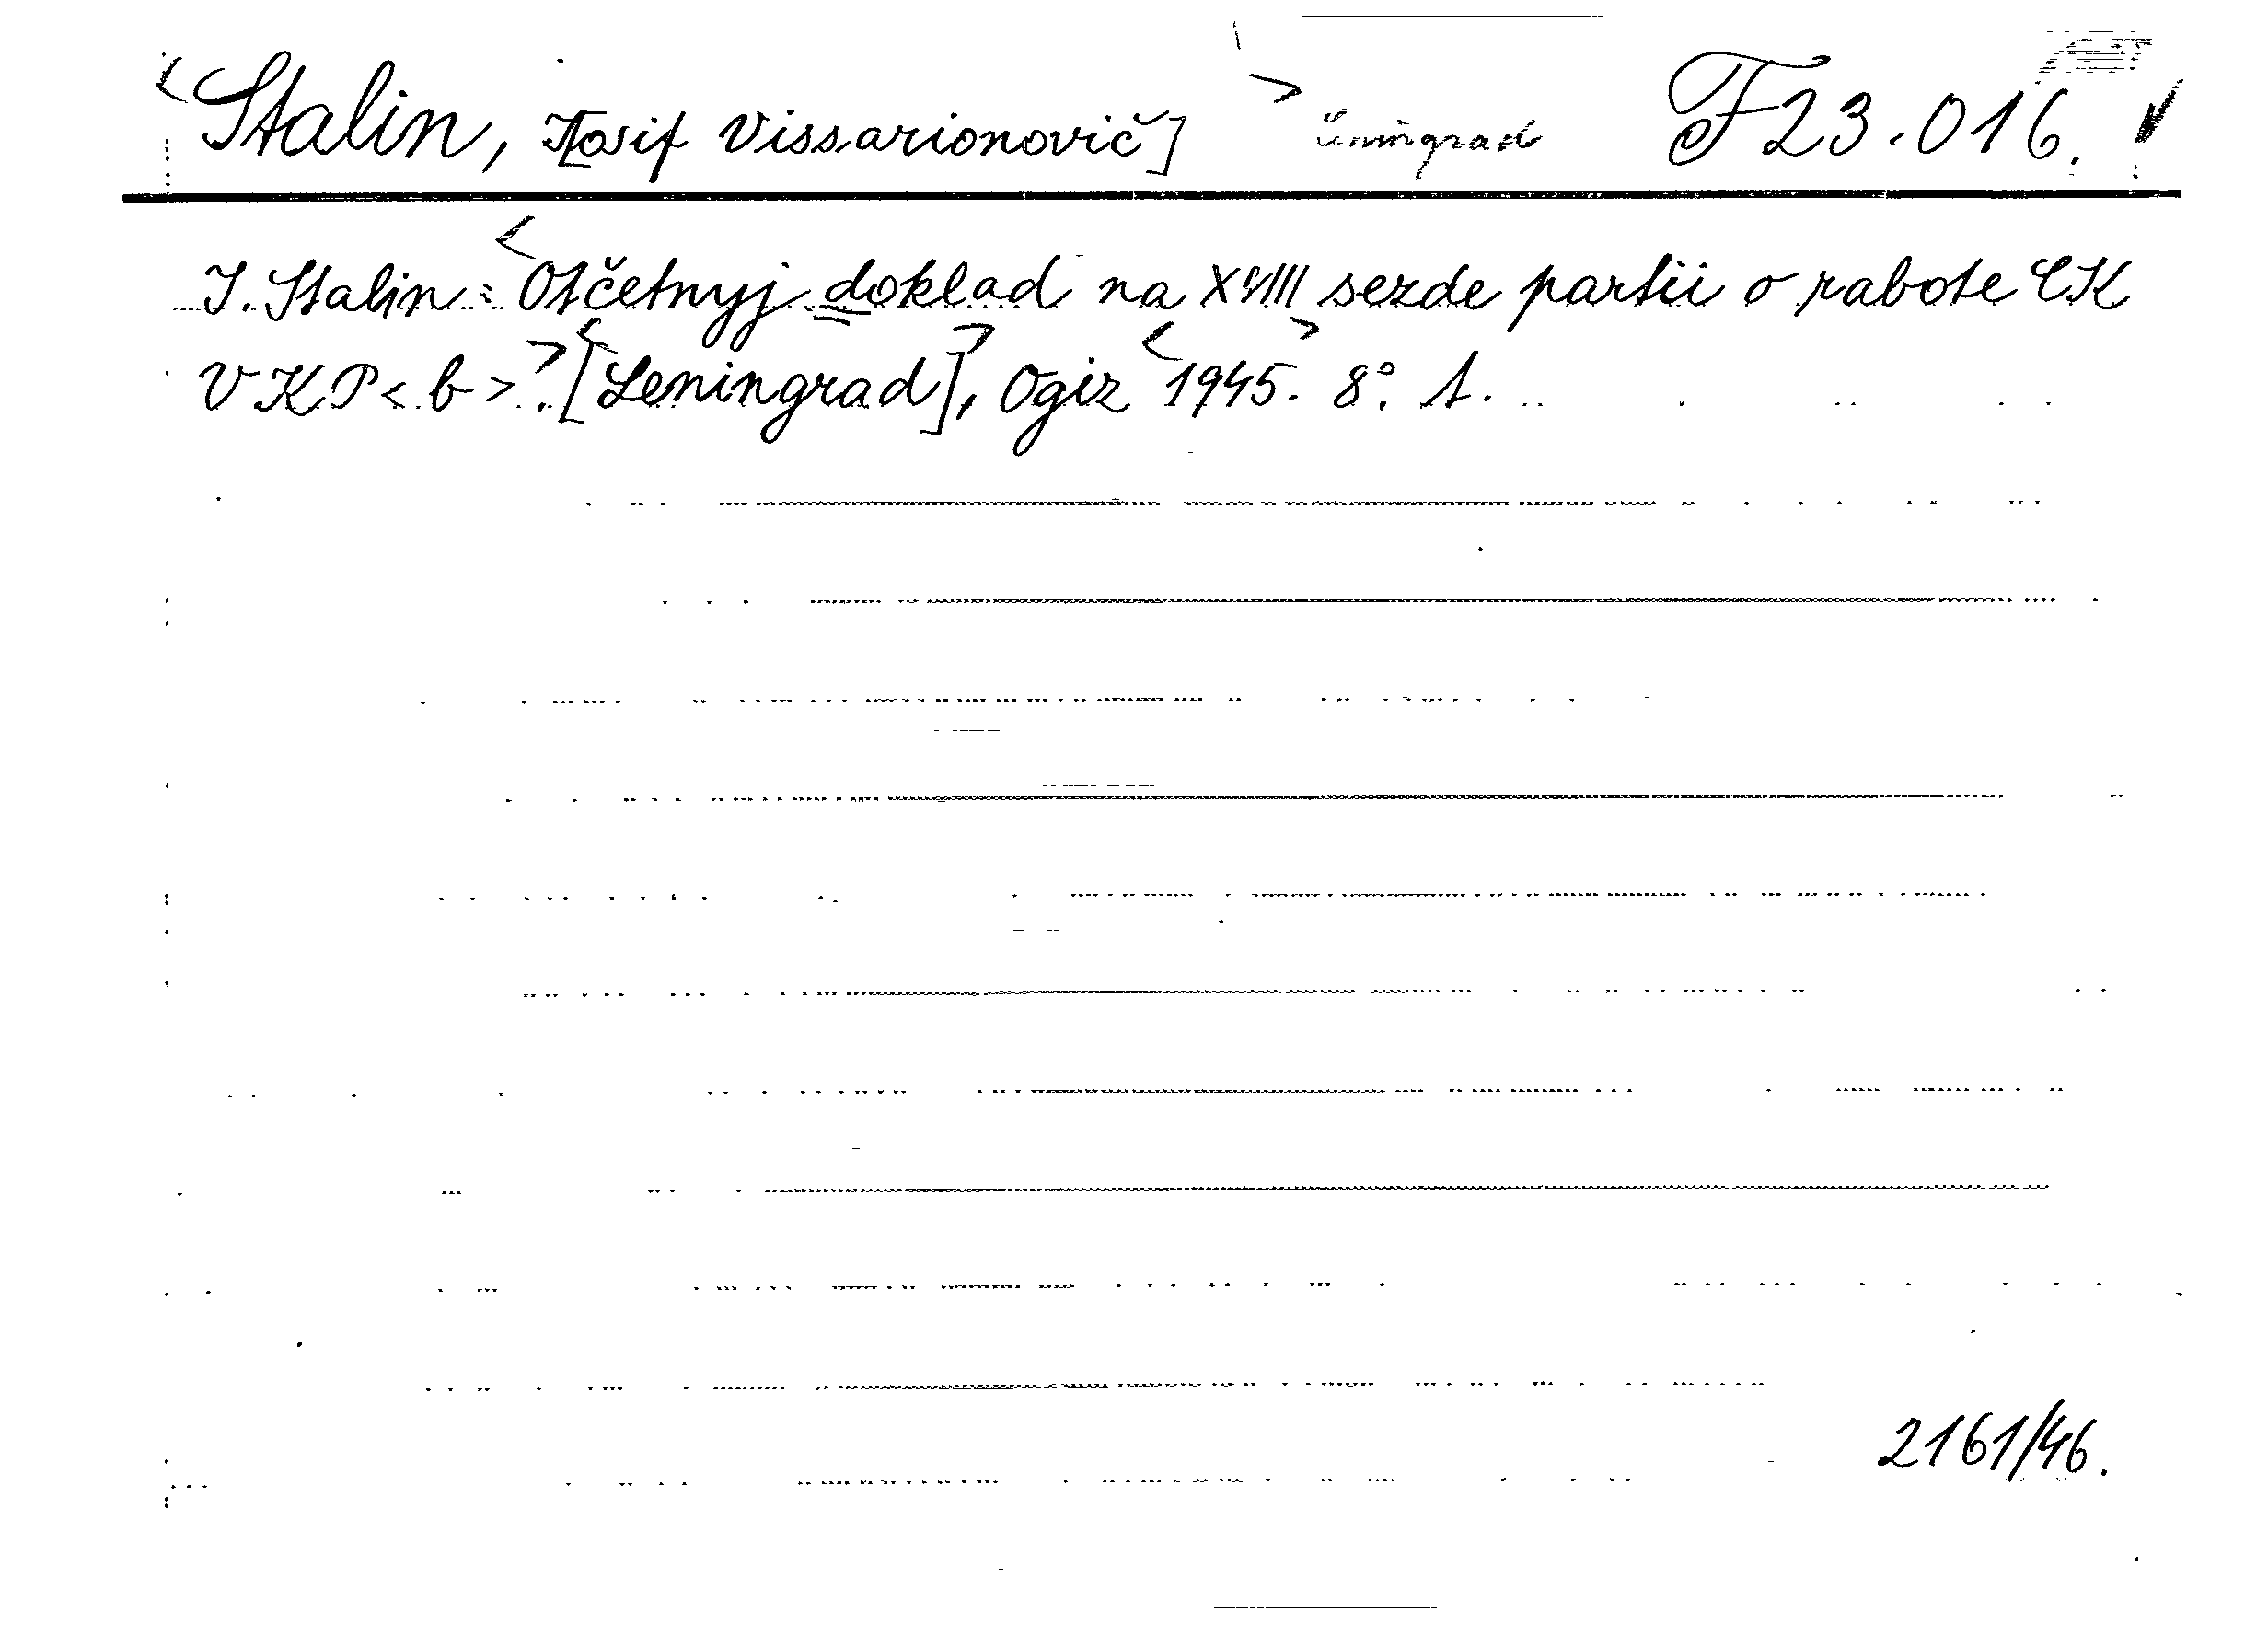 <Stalin, I[osif Vissarionovič]> Leningrad F 23.016.
I. Stalin: <Otčetnyj doklad na XVIII sezde partii o rabote CK
VKP<b>>. <[Leningrad]>, Ogiz <1945.> 8° 1.
2161/46.